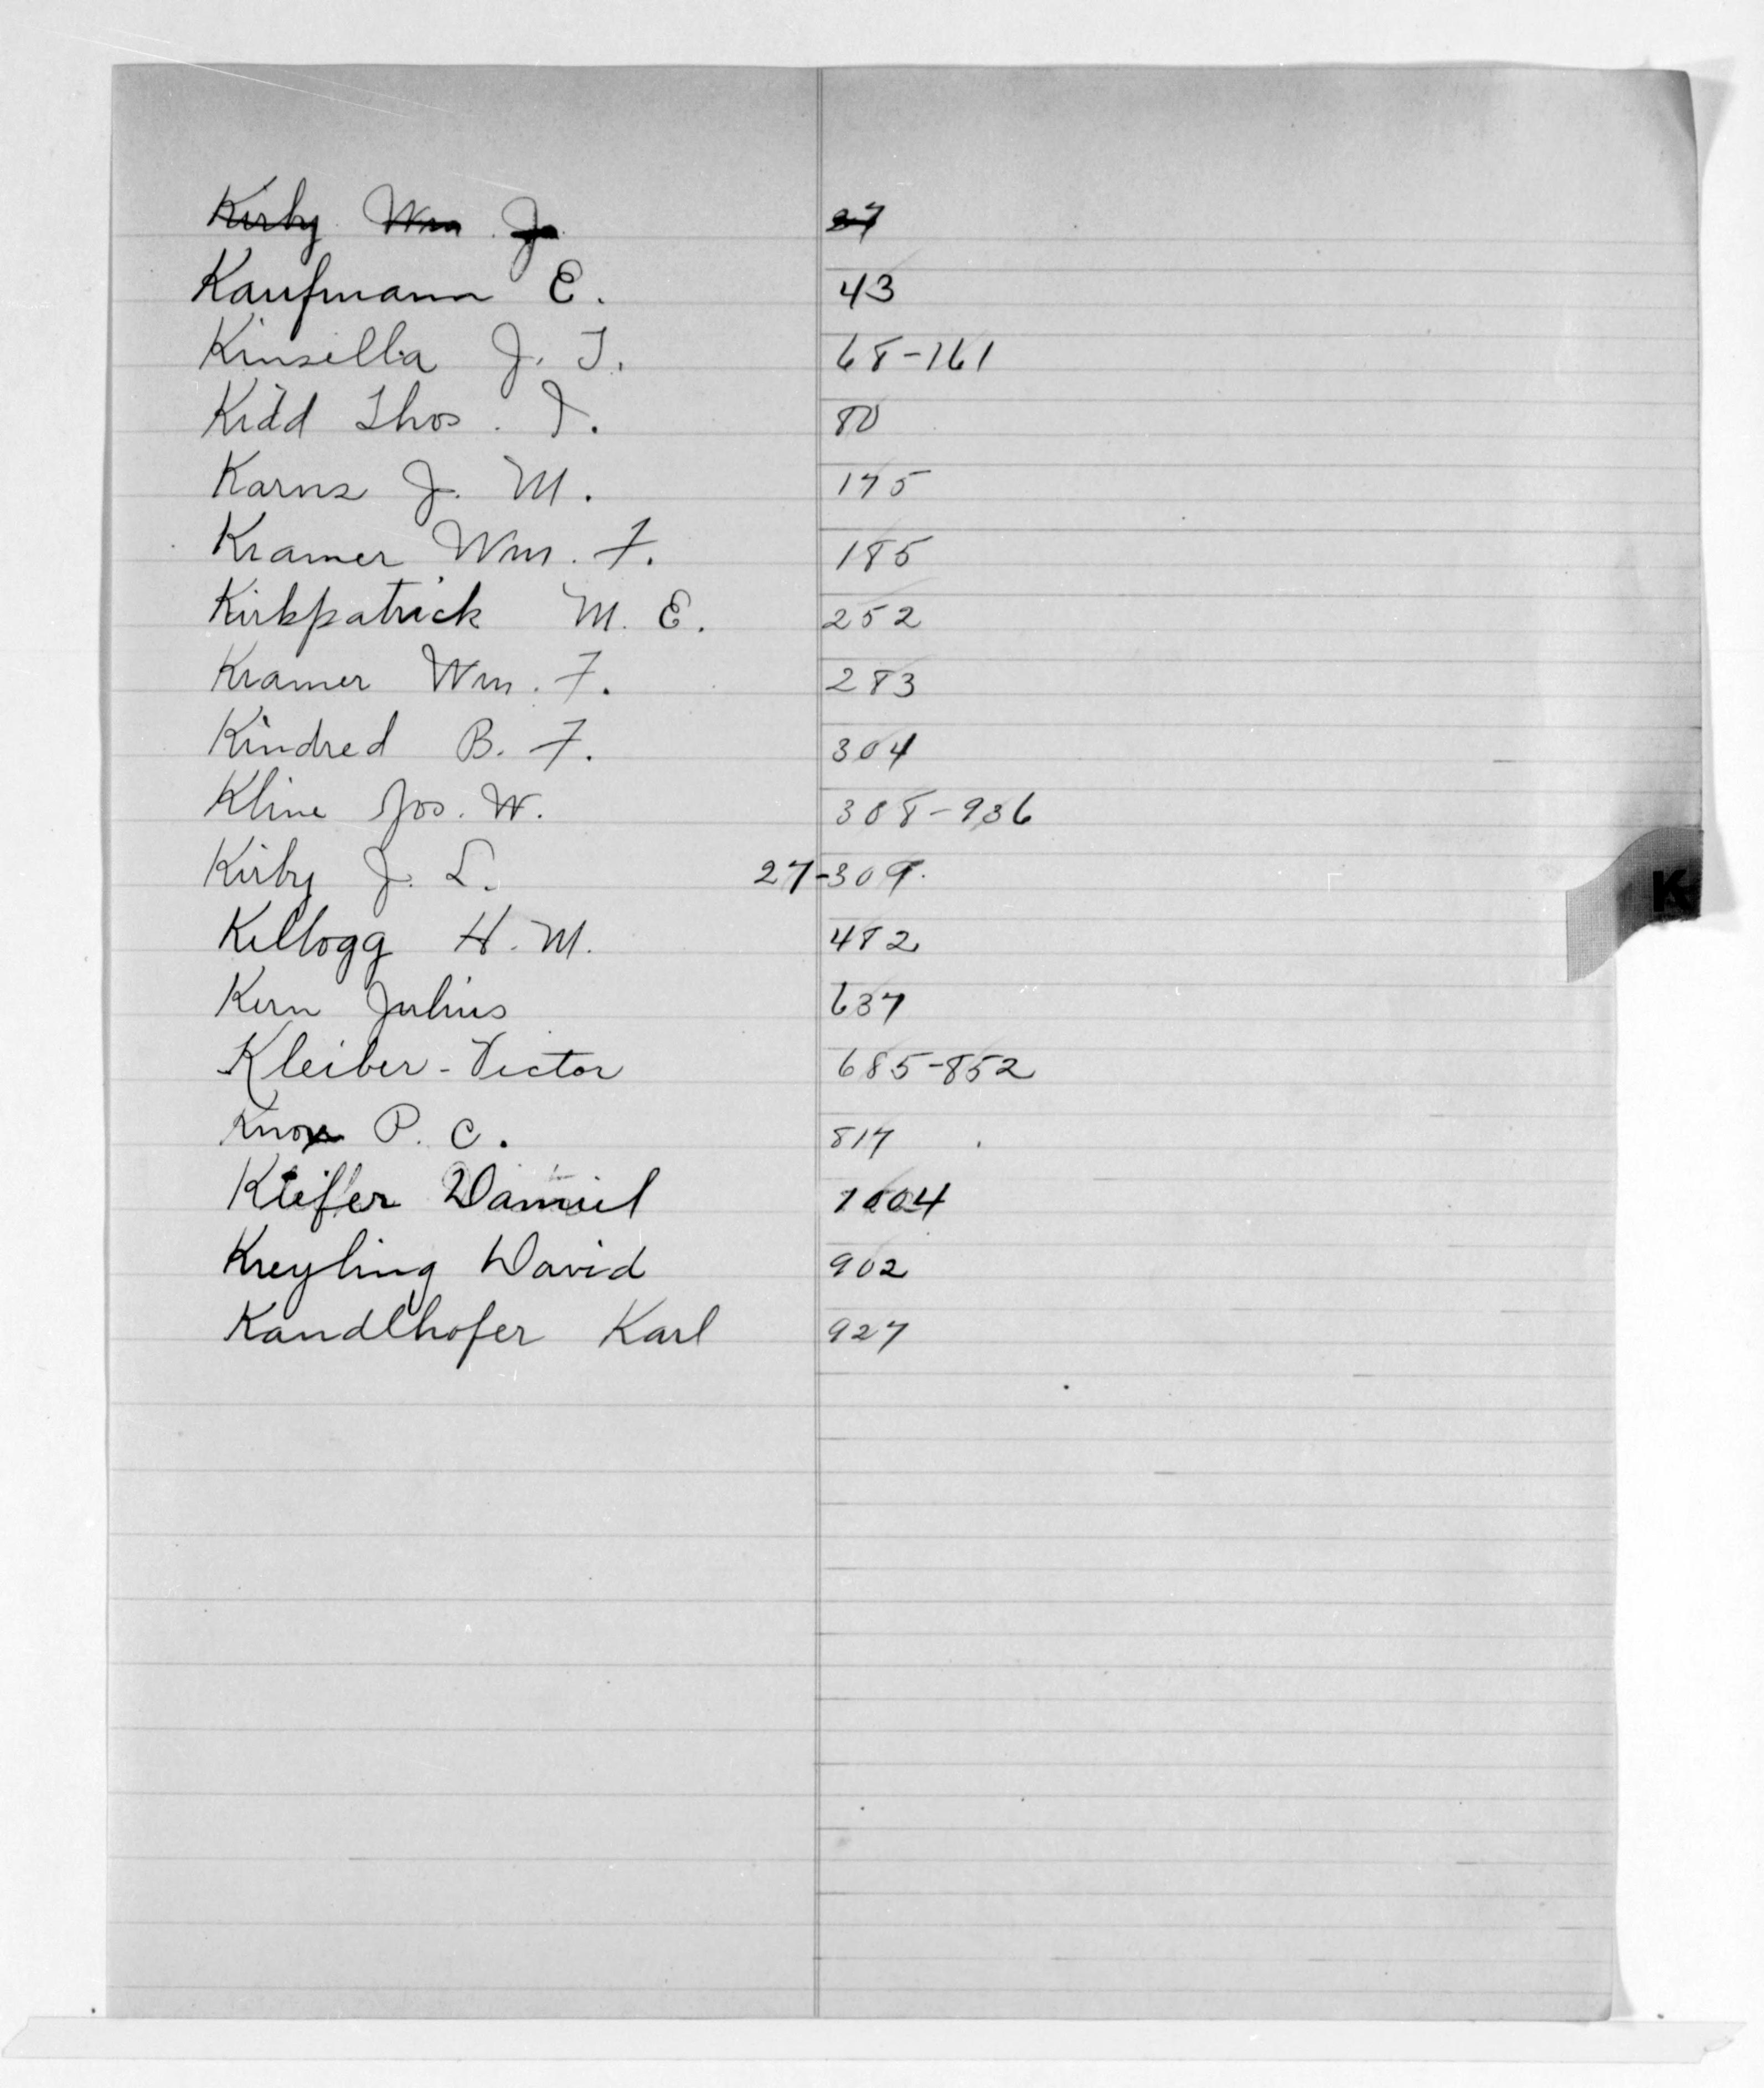 Kirby Wm Jr 27
Kaufmann E. 43
Kinsella J. T. 68-161
Kidd Thos. I. 80
Karns J. M. 175
Kramer Wm. F. 185
Kirkpatrick M. E. 252
Kramer Wm. F. 283
Kindred B. F. 304
Kline Jos. W. 308-936
Kirby J. L. 27-309
Kellogg H. M. 482
Kern Julius 637
Kleiber-Victor 685-852
Knox P. C. 817
Kiefer Daniel 1004
Kreyling David 902
Kandlhofer Karl 927
K